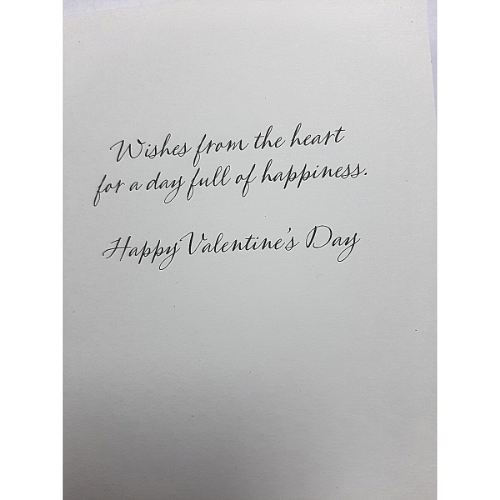 Wishes from the heart
for a day full of happiness.
Happy Valentine's Day